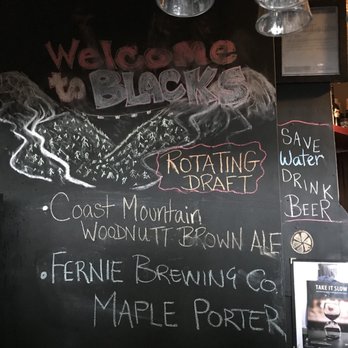 Welcome
to BLACKS
ROTATING
DRAFT
• COAST MOUNTAIN
WOODNUTT BROWN ALE
• FERNIE BREWING CO.
MAPLE PORTER
SAVE
Water
DRINK
BEER
TAKE IT SLOW